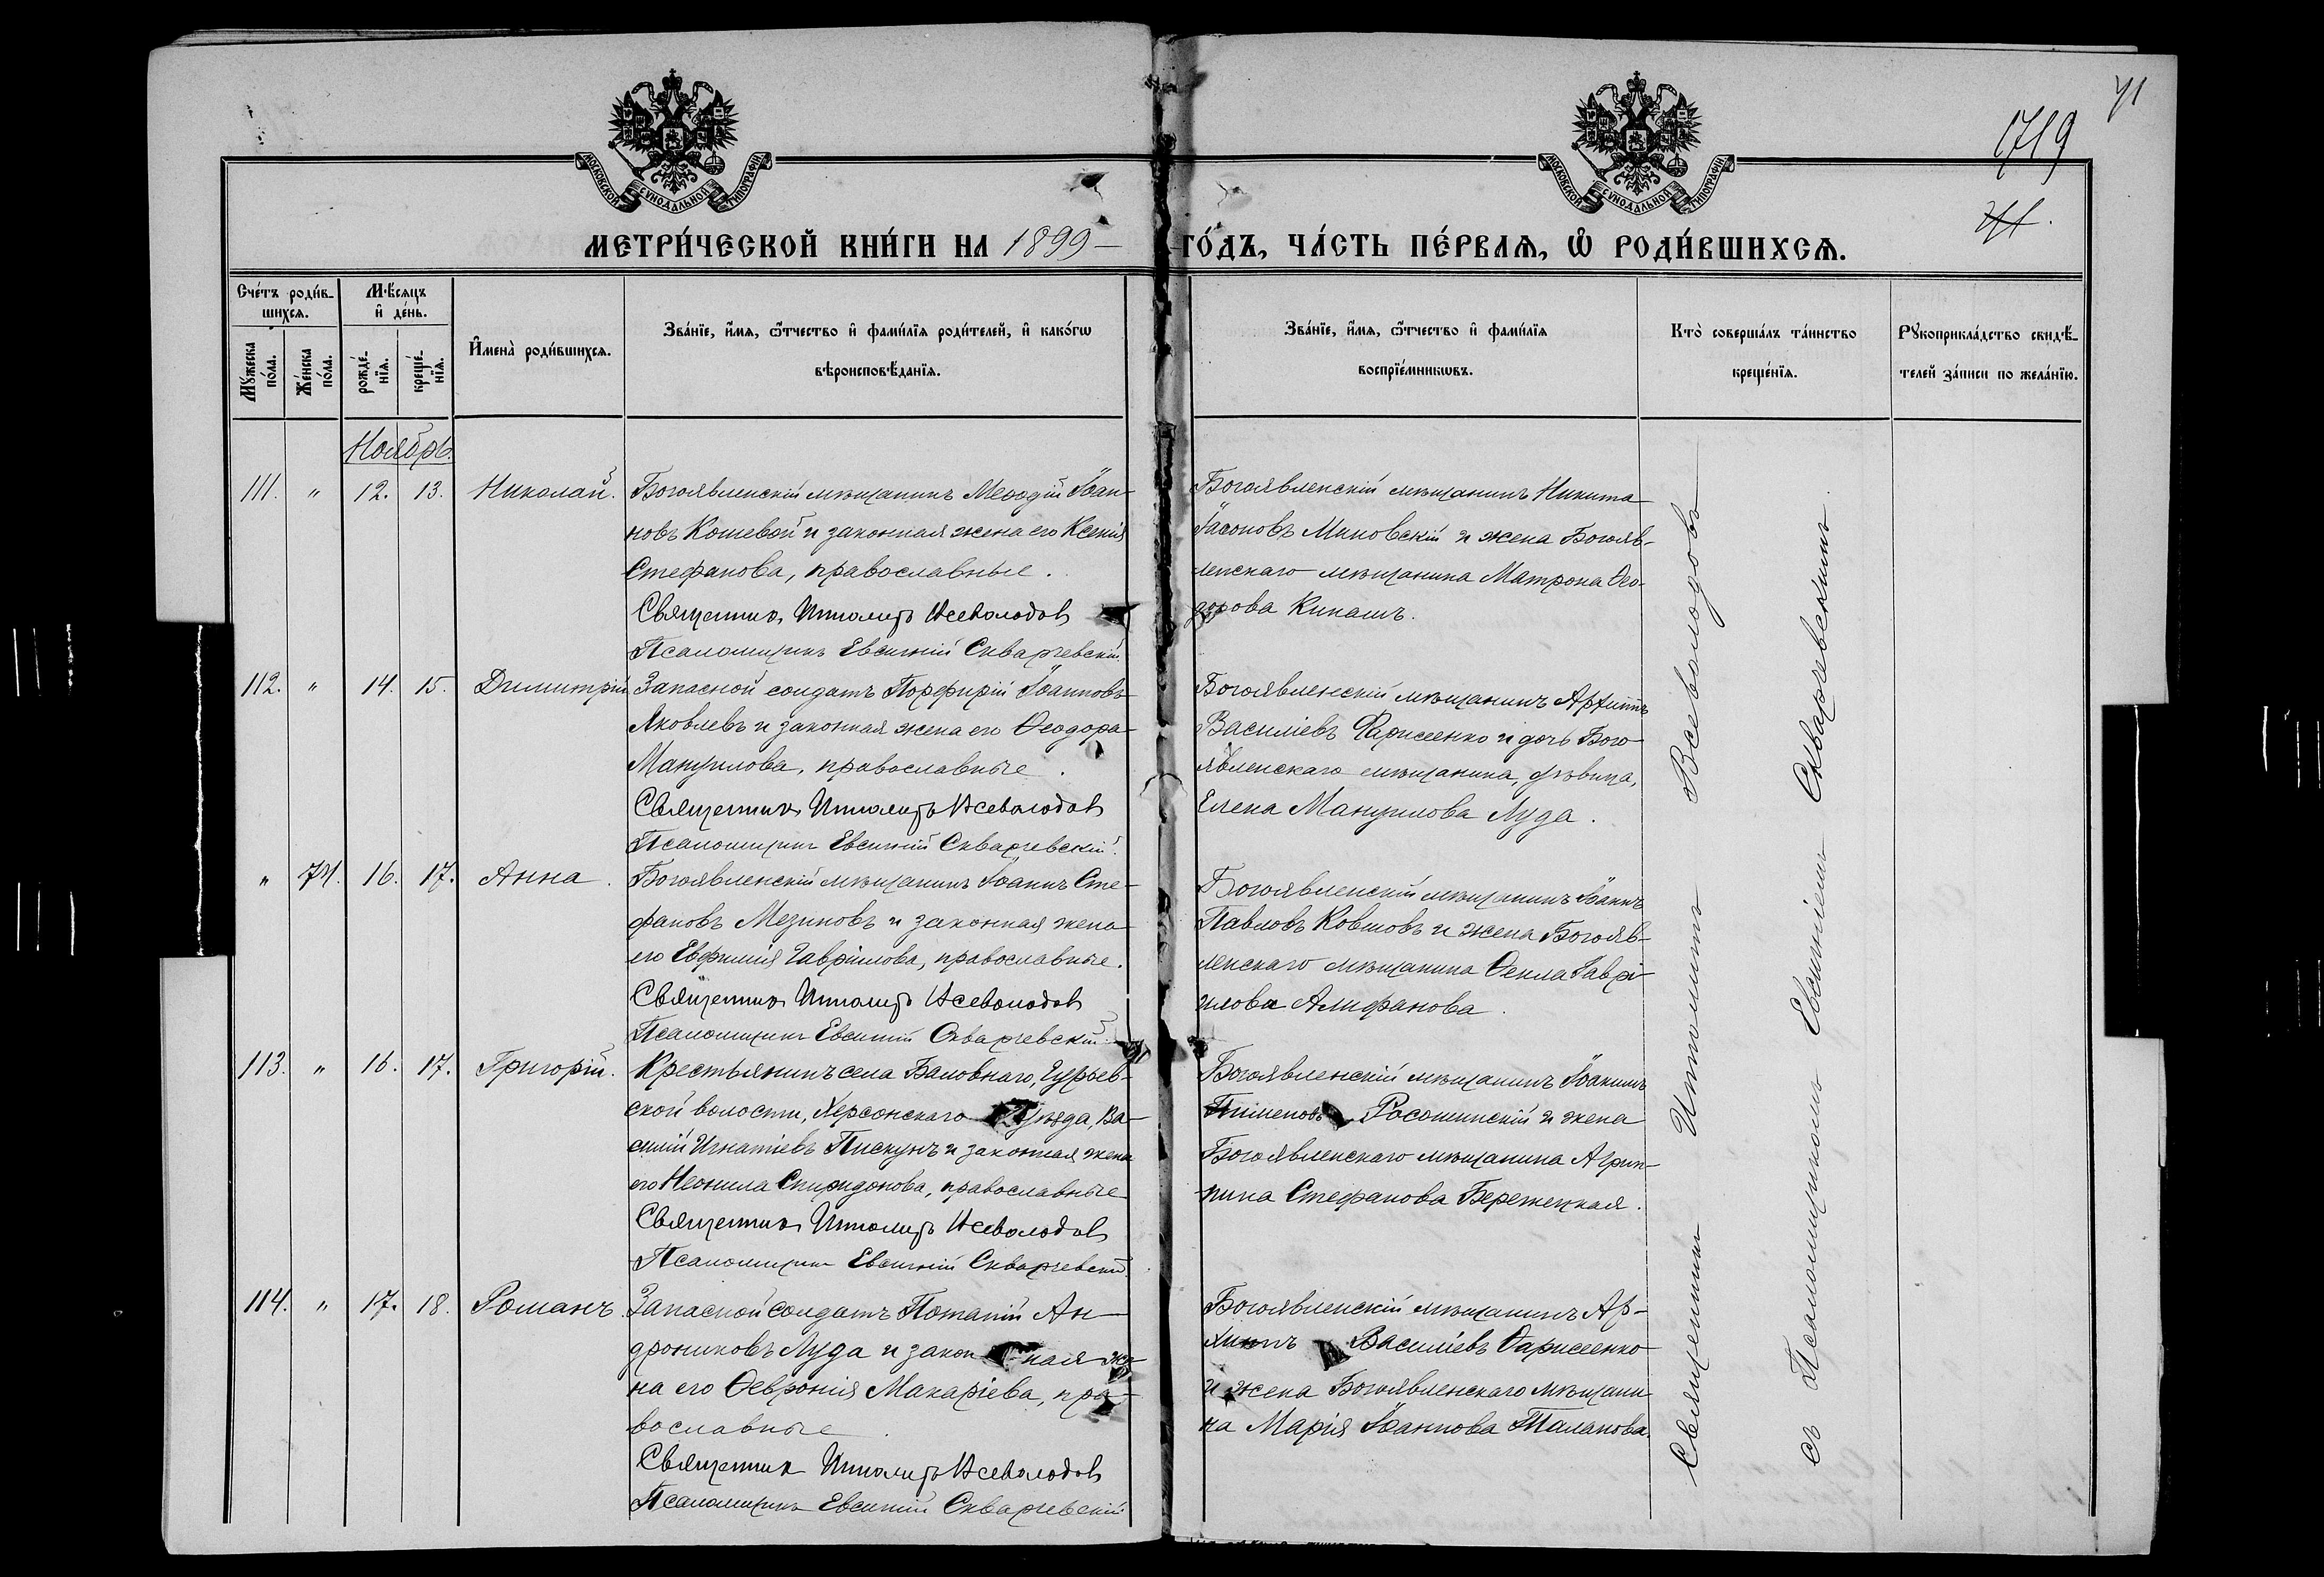 71
1719
71.
МОСКОВСКОЙ СѴНОДАЛЬНОЙ ТИПОГРАФІИ
МОСКОВСКОЙ СѴНОДАЛЬНОЙ ТИПОГРАФІИ
МЕТРИ́ЧЕСКОЙ КНИ́ГИ НА 1899 – ГО́ДЪ, ЧА́СТЬ ПЕ́РВАѦ, Ѡ҆ РОДИ́ВШИХСѦ.
Сче́тъ роди́в-
шихсѧ.
Мꙋ́жеска по́ла.
Же́нска по́ла.
Мѣ́сѧцъ
и҆ де́нь.
рожде́-нїѧ.
креще́-нїѧ.
И҆мена̀ роди́вшихсѧ.
Зва́нїе, и҆́мѧ, ѻ҆́тчество и҆ фами́лїѧ роди́телей, и҆ како́гѡ
вѣроисповѣ́данїѧ.
Зва́нїе, и҆́мѧ, ѻ҆́тчество и҆ фами́лїѧ
воспрїе́мникѡвъ.
Кто̀ соверша́лъ та́инство
креще́нїѧ.
Рꙋкоприкла́дство свидѣ́-
телей за́писи по жела́нїю.
Ноябрь.
111. " 12. 13. Николай.
Богоявленскій мѣщанинъ Меѳодій Іоан-
новъ Кошевой и законная жена его Ксенія
Стефанова, православные.
Священникъ Ипполитъ Всеволодовъ
Псаломщикъ Евсигній Скваржевскій.
Богоявленскій мѣщанинъ Никита
Іасоновъ Миновскій и жена Богояв-
ленскаго мѣщанина Матрона Ѳео-
дорова Кинашъ.
112. " 14. 15. Димитрій
Запасной солдатъ Порфирій Іоанновъ
Яковлевъ и законная жена его Ѳеодора
Мануилова, православные.
Священникъ Ипполитъ Всеволодовъ
Псаломщикъ Евсигній Скваржевскій.
Богоявленскій мѣщанинъ Архиппъ
Василіевъ Фарисеенко и дочь Бого-
явленскаго мѣщанина, дѣвица,
Елена Мануилова Луда.
" 74. 16. 17. Анна.
Богоявленскій мѣщанинъ Іоаннъ Сте-
фановъ Мезиновъ и законная жена
его Евфимія Гавріилова, православные.
Священникъ Ипполитъ Всеволодовъ
Псаломщикъ Евсигній Скваржевскій.
Богоявленскій мѣщанинъ Іоаннъ
Павловъ Ковшовъ и жена Богояв-
ленскаго мѣщанина Ѳекла Гаврі-
илова Алифанова.
113. " 16. 17. Григорій.
Крестьянинъ села Баловнаго, Гурьев-
ской волости, Херсонскаго уѣзда, Ва-
силій Игнатіевъ Пискунъ и законная жена
его Неонила Спиридонова, православные
Священникъ Ипполитъ Всеволодовъ
Псаломщикъ Евсигній Скваржевскій.
Богоявленскій мѣщанинъ Іоакимъ
Пименовъ Росошинскій и жена
Богоявленскаго мѣщанина Агрип-
пина Стефанова Бережецкая.
114. " 17. 18. Романъ.
Запасной солдатъ Потапій Ан-
дрониковъ Луда и законная же-
на его Ѳевронія Макаріева, пра-
вославные.
Священникъ Ипполитъ Всеволодовъ
Псаломщикъ Евсигній Скваржевскій
Богоявленскій мѣщанинъ Ар-
хиппъ Василіевъ Фарисеенко
и жена Богоявленскаго мѣщани-
на Марія Іоаннова Таланова.
Священникъ Ипполитъ Всеволодовъ
съ Псаломщикомъ Евсигніемъ Скваржевскимъ.